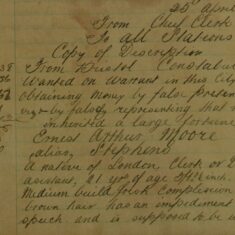 25 April
From Chief Clerk
To all Stations
Copy of Description
From Bristol Constabu
Wanted on Warrant in this City
obtaining money by false preten
by falsely representing that
inherited a large fortune
Ernest Arthur Moore
alias Stephens
a native of London, Clerk or
assistant, 21 yrs of age 5ft inch
Medium build fresh complexion
brown hair has an impediment
speech and is supposed to be